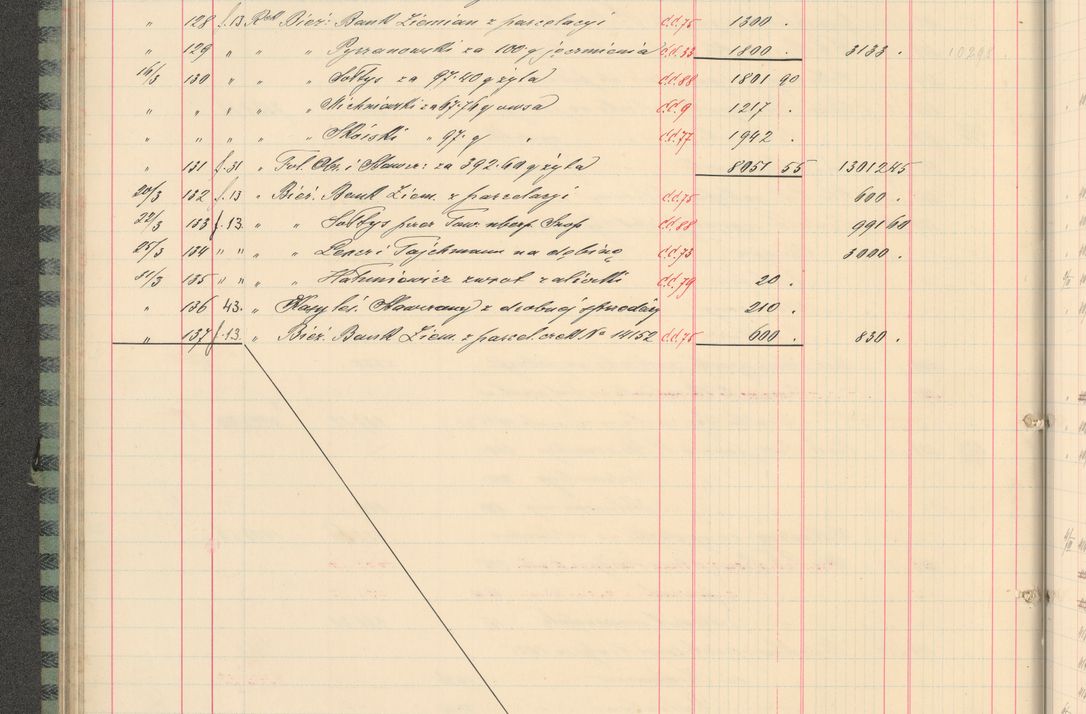 " 128 f. 13 Rek Bież: Bank Ziemian z parcelacyi d.d. 75 1300 .
" 129 " " " za 100 q jęczmienia d.d. 33 1800 . 3133 . 10298 .
16/3 130 " " " Sołtys za 97·40 q żyta d.d. 88 1801 90
" " " " " Michniewski za 67·76 q owsa d.d. 9 1217 .
" " " " " Skórski " 97· q " d.d. 77 1942 .
" 131 f. 31 " Fol. Obr. i Stawer: za 392·60 q żyta 8051 55 13012 45
20/3 132 f. 13 " Bież. Bank Ziem. z parcelacyi d.d. 75 600 .
22/3 133 f. 13. " " Sołtys przez Tow: d.d. 88 991 60
25/3 134 " " " " na dębinę d.d. 73 3000 .
31/3 135 " " " zwrot zaliczki d.d. 79 20 .
" 136 43. " Kasy leś. z drobnej sprzedaży 210 .
" 137 f. 13. " Bież. Bank Ziem. z parcel. czek No 14152 d.d. 75 600 . 830 .